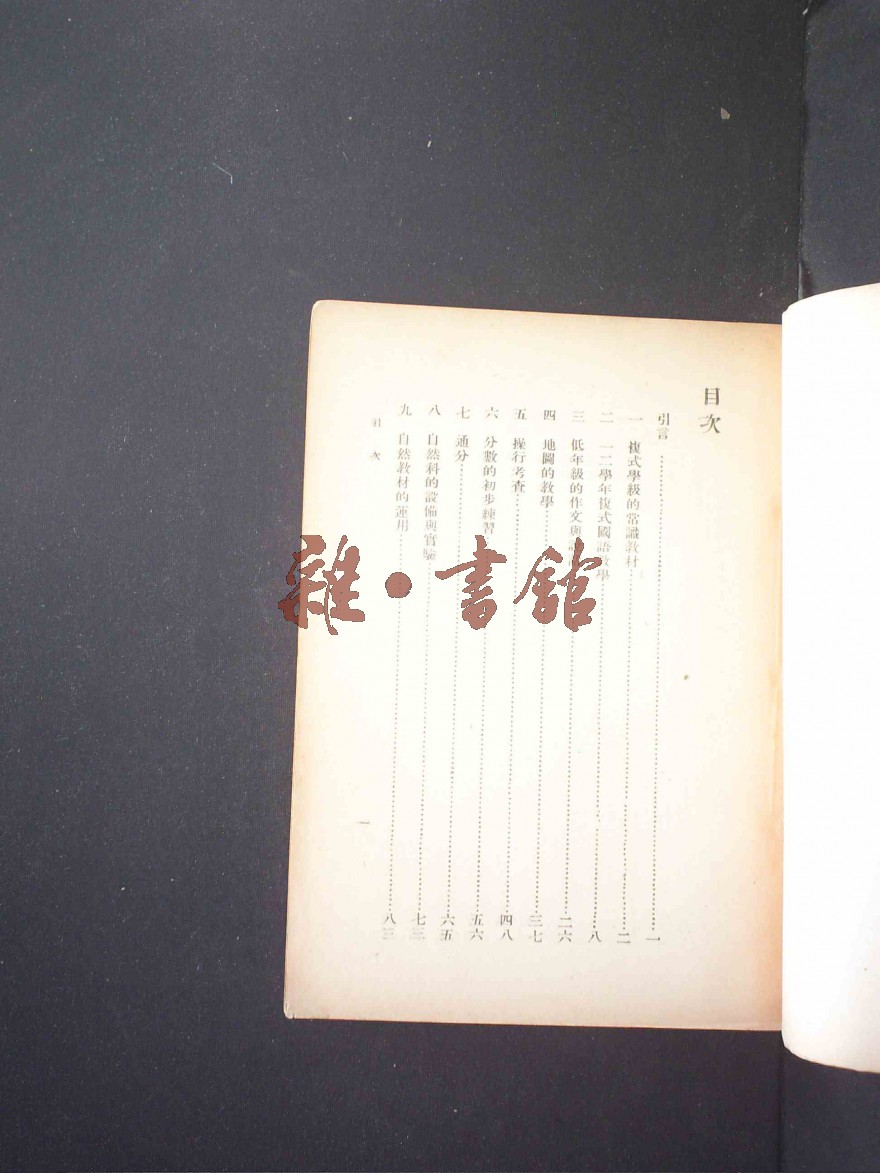 目次
引言……一
一 複式學級的常識教材……二
二 一二學年複式國語教學……八
三 低年級的作文與……二六
四 地圖的教學……三七
五 操行考查……四八
六 分數的初步練習……五六
七 通分……六五
八 自然科的設備與實驗……七三
九 自然教材的運用……八三
目次
一
雜·書館